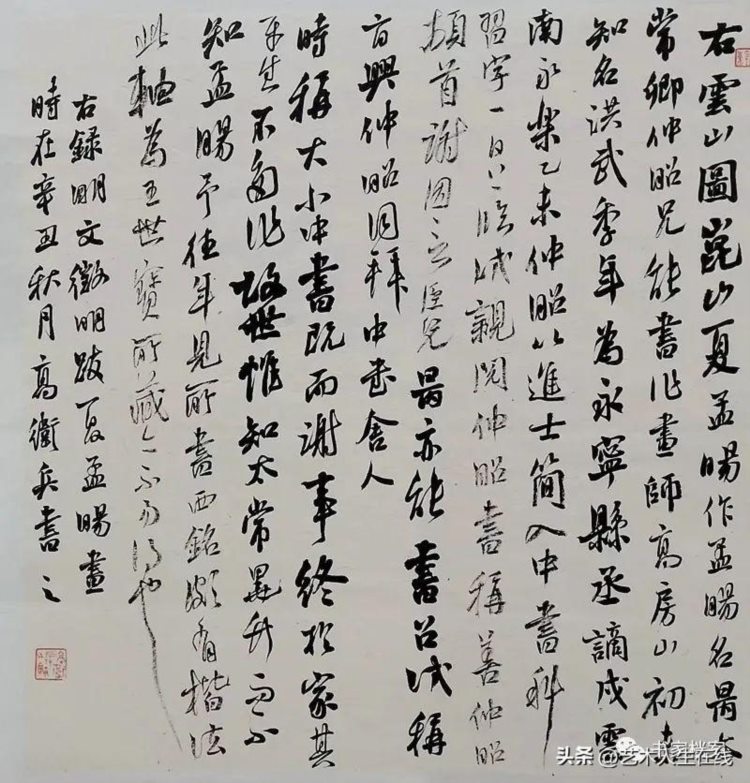 右雲山圖崑山夏孟暘作孟暘名昺太
常卿仲昭兄能書作畫師高房山初未
知名洪武季年為永寧縣丞謫戍雲
南永樂乙未仲昭以進士簡入中書科
習字一日上臨試親閱仲昭書稱善仲昭
頓首謝因言臣兄昺亦能書召試稱
旨與仲昭同拜中書舍人
時稱大小中書既而謝事終於家其
平生不多作故世惟知太常墨竹而不
知孟暘予往年見所書西銘頗有楷法
此軸為王世寶所藏亦不易得也
右錄明文徵明跋夏孟暘畫
時在辛丑秋月高衛兵書之
书家档案
头条 @艺术人生在线